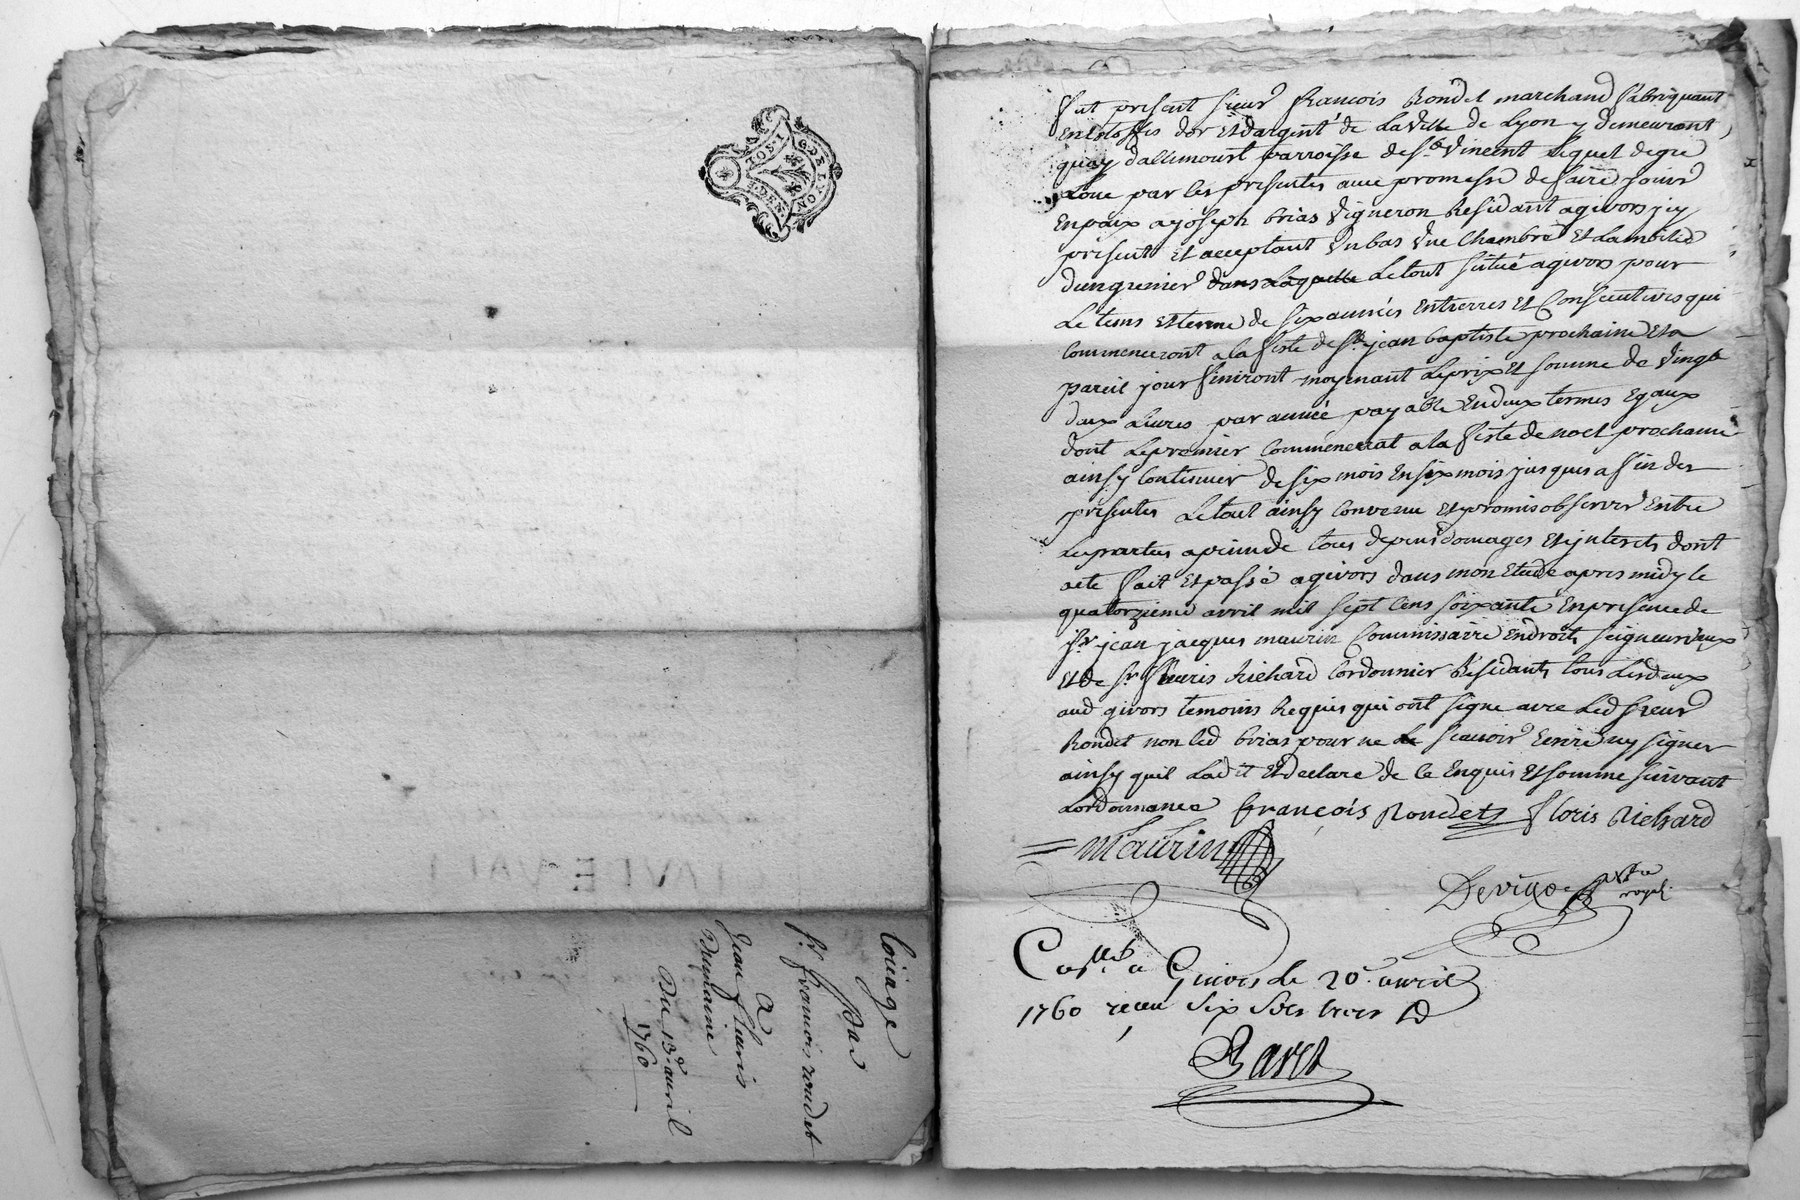 G. DE LYON
I. SOL
4. DEN.
Loüage
Par
Sr. francois rondet
A
Jean Claris
Dumaine
Du 13e. auril
1760
fut présent sieur francois Rondet marchand fabriquant
En Etoffes dor et dargent de La Ville de Lyon y demeurant,
quay dallincourt parroisse de St. Vincent Lequel de gré
Loue par les presentes avec promesse de faire jouir
En paix a joseph brias Vigneron Residant a givors jcy
présent et acceptant Vn bas Vne Chambre et La moitié
dun grenier dans Laquelle Le tout situé a givors pour
Le tems et terme de six années Entierres et Consecutives qui
Commenceront a la feste de St. jean baptiste prochaine et a
pareil jour finiront moyenant Le prix et somme de Vingt
deux Livres par année payable En deux termes Egaux
dont Le premier Commencerat a la feste de noel prochaine
ainsy Continuer de six mois En six mois jusques a fin des
présentes Le tout ainsy Convenu et promis observer Entre
Les parties a peine de tous depens domages et jnterets dont
acte fait et passé a givors dans mon Etude apres midy le
quatorzieme avril mil sept Cens soixante En presence de
Sr. jean jacques maurin Commissaire En droits seigneuriaux
et de Sr. floris Richard Cordonnier Résidants tous Les deux
aud givors temoins Requis qui ont signe avec Led sieur
Rondet non led brias pour ne Le scavoir Ecrire ny signer
ainsy quil La dit et declaré de Ce Enquis et sommé suivant
Lordonnance françois Rondet floris Richard
Maurin
Deville
royal.
Con.lle a Givors le 20e. avril
1760 receu six sols trois d
Baret